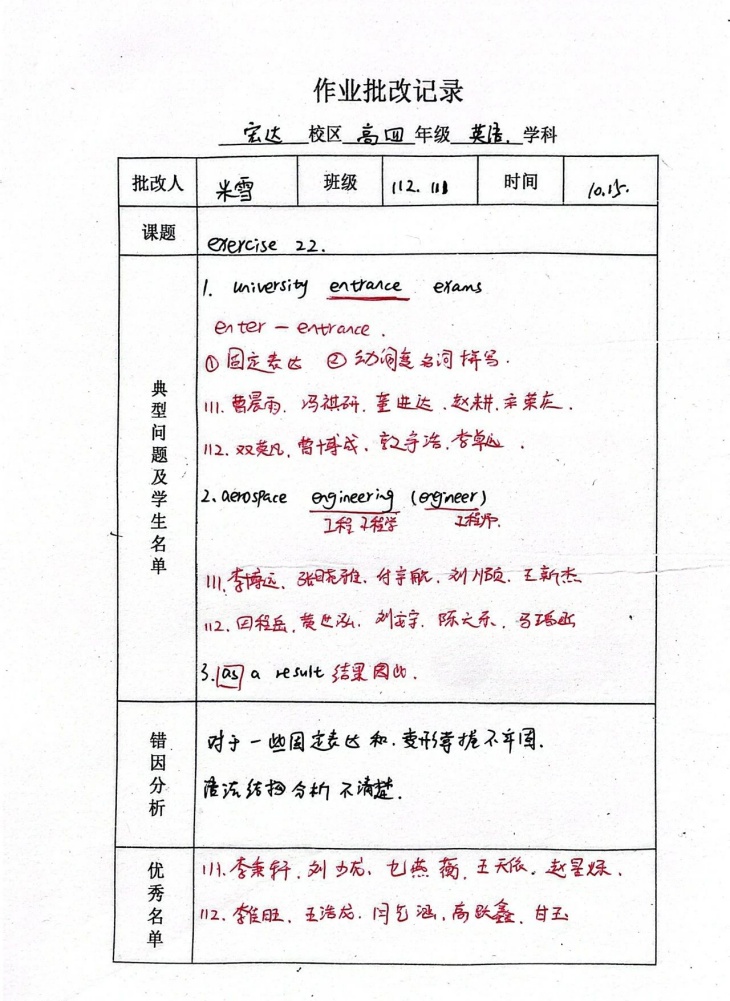 作业批改记录
宏达 校区 高四 年级 英语. 学科
批改人 米雪 班级 112. 111 时间 10.15.
课题 exercise 22.
典型问题及学生名单
1. university entrance exams
enter — entrance.
① 固定表达 ② 动词变名词拼写.
111. 曹晨雨. 冯祺研. 董进达. 赵耕. 辛荣庆.
112. 双英凡. 曹博成. 李卓远.
2. aerospace engineering (engineer)
工程 工程学 工程师.
111. 李博远. 付宇航. 刘顺. 王新杰
112. 田程岳. 黄世泓. 刘宇. 陈天乐.
3. as a result 结果因此.
错因分析
对于一些固定表达和. 变形掌握不牢固.
语法结构分析不清楚.
优秀名单
111. 李秉轩. 刘力龙. 王天依. 赵星烁.
112. 李佳旺. 王浩龙. 闫艺涵. 高跃鑫. 甘玉